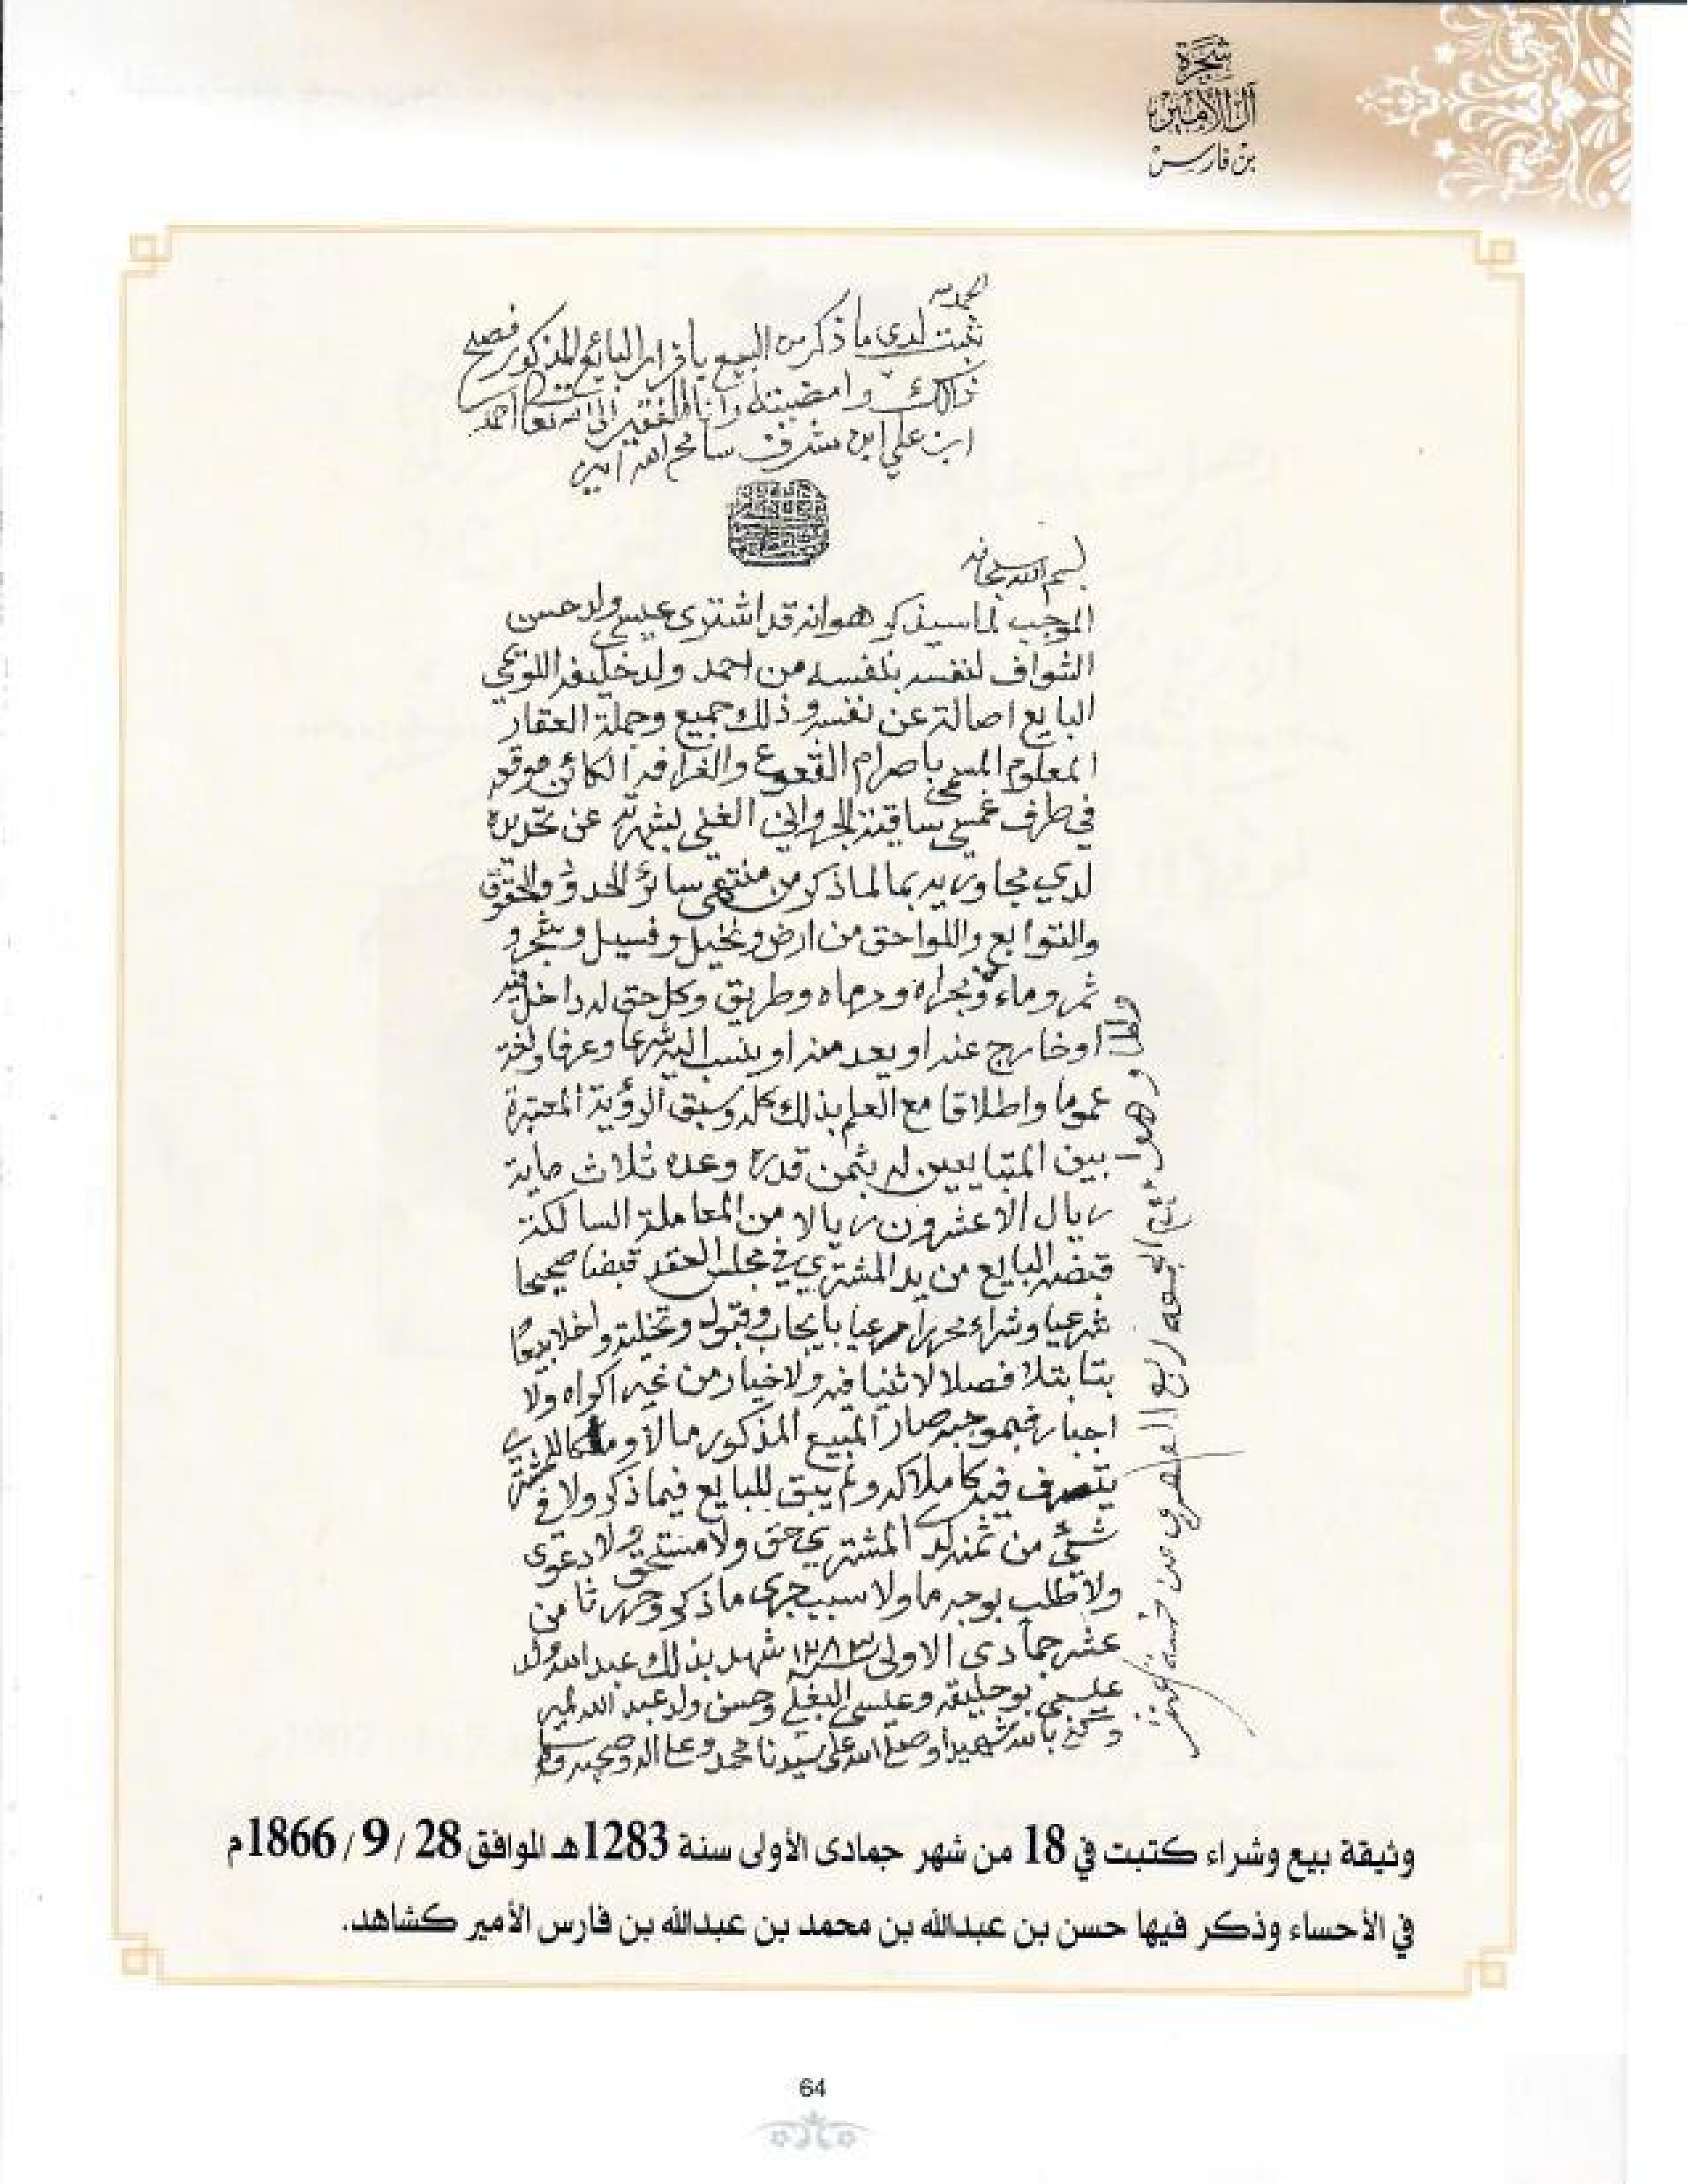 شجرة
آل الأمير
بن فارس
الحمد لله
ثبت لدي ما ذكر من البيع باقرار البائع المذكور فصح
ذالك وامضيته وانا الفقير الى الله تعا احمد
ابن علي ابن مشرف سامحه الله امين
بسم الله سبحانه
الموجب لما سيذكر هو انه قد اشترى عيسى ولد حسن
الشواف لنفسه بنفسه من احمد ولد خليفه اللويمي
البايع اصالة عن نفسه وذلك جميع وجملة العقار
المعلوم المسمى باصرام القعوع والغرافه الكائن موقعه
في طرف غمسي ساقية الغني بشهرته عن تحديده
لدي مجاوريه بما لما ذكر من منتهى سائر الحدود والحقوق
والتوابع واللواحق من ارض ونخيل وفسيل وشجر و
ثمر وماء ومجراه ومرماه وطريق وكل حق له داخل فيه
أو خارج عنه او يعد منه او ينسب اليه شرعا وعرفا ولغة
عموما واطلاقا مع العلم بذلك كله وسبق الرؤية المعتبرة
بين المتبايعين له بثمن قدره وعده ثلاث ماية
ريال الا عشرون ريالا من المعاملة السالكة
قبضه البايع من يد المشتري في مجلس العقد قبضا صحيحا
شرعيا وشراء محررا مرعيا بايجاب وقبول وتخلية واخلا بيعا
بتا بتلا فصلا لا ثنيا فيه ولا خيار من غير اكراه ولا
اجبار فبموجبه صار المبيع المذكور مالا وملكا للمشتري
يتصرف فيه كاملاكه ولم يبق للبايع فيما ذكر ولا في
شئ من ثمنه لدى المشتري حق ولا مستحق ولا دعوى
ولا طلب بوجه ما ولا سبب جرى ما ذكر وحرر ثامن
عشر جمادى الاولى ١٢٨٣ شهد بذلك عبد الله ولد
علي بوحليقه وعيسى البغلي وحسن ولد عبد الله لمير
وكفى بالله شهيدا وصلى الله على سيدنا محمد وعلى اله وصحبه وسلم
وثيقة بيع وشراء كتبت في 18 من شهر جمادى الأولى سنة 1283هـ الموافق 28 / 9 / 1866م
في الأحساء وذكر فيها حسن بن عبدالله بن محمد بن عبدالله بن فارس الأمير كشاهد.
64